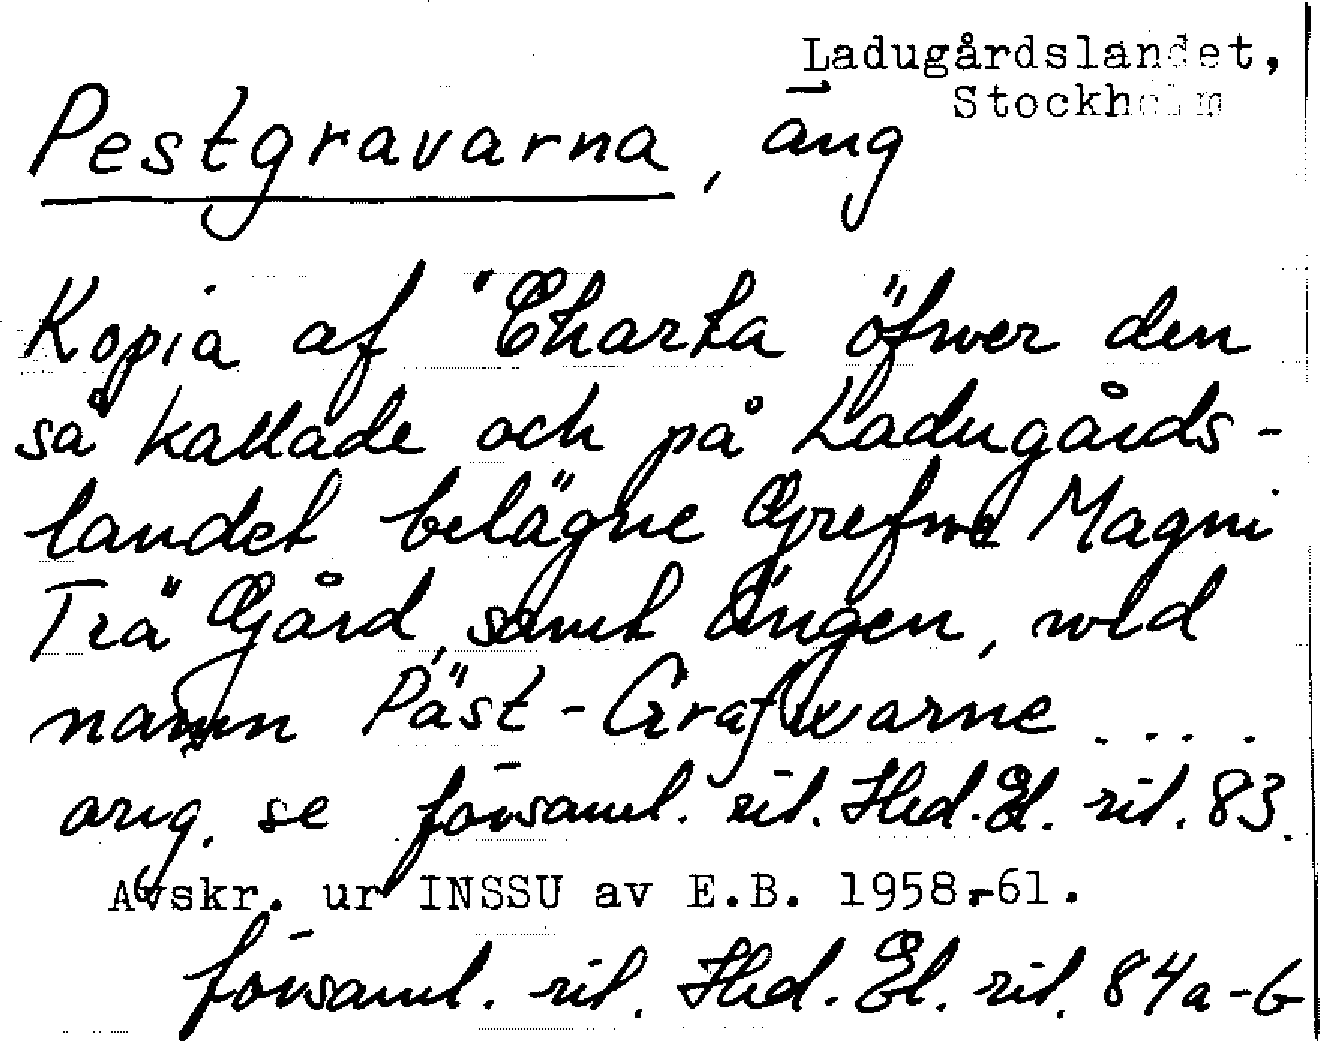 Ladugårdslandet,
Stockholm
Pestgravarna, äng
Kopia af "Charta öfwer den
så kallade och på Ladugårds-
landet belägne Grefwe Magni
Trä Gård, samt Ängen, wid
namn Päst-Grafwarne ....
orig. se församl. rit. Hed. El. rit. 83.
Avskr. ur INSSU av E.B. 1958-61.
församl. rit. Hed. El. rit. 84a-b